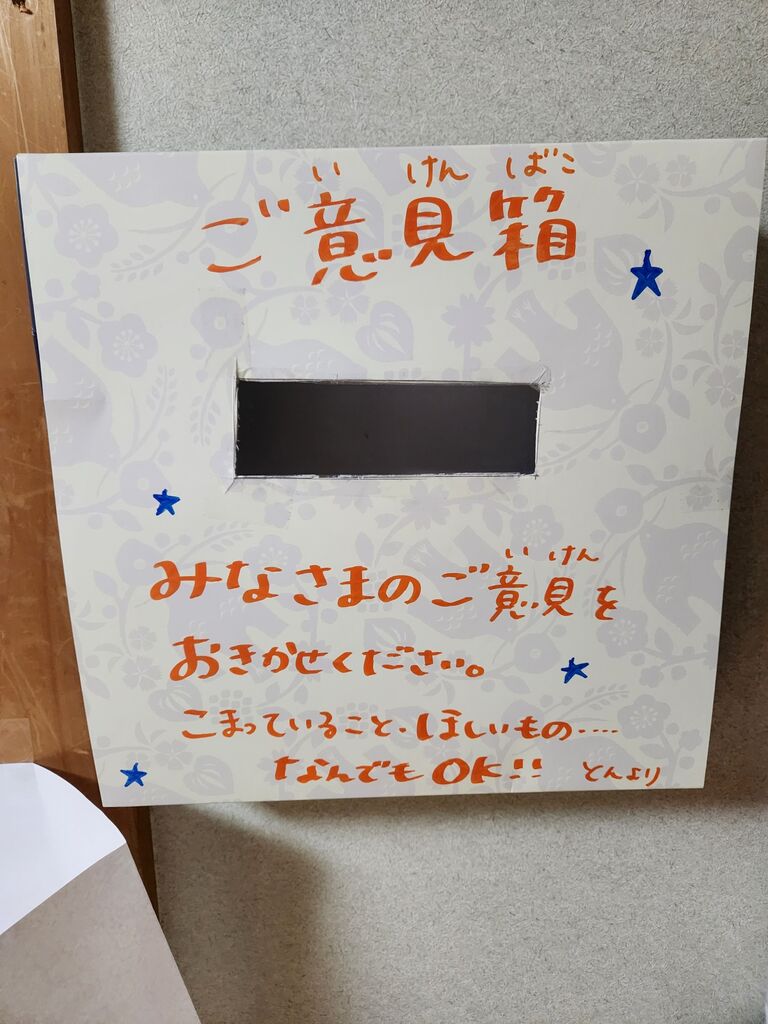 い けん ばこ
ご意見箱
い けん
みなさまのご意見を
おきかせください。
こまっていること・ほしいもの‥‥
なんでもOK!! とんより